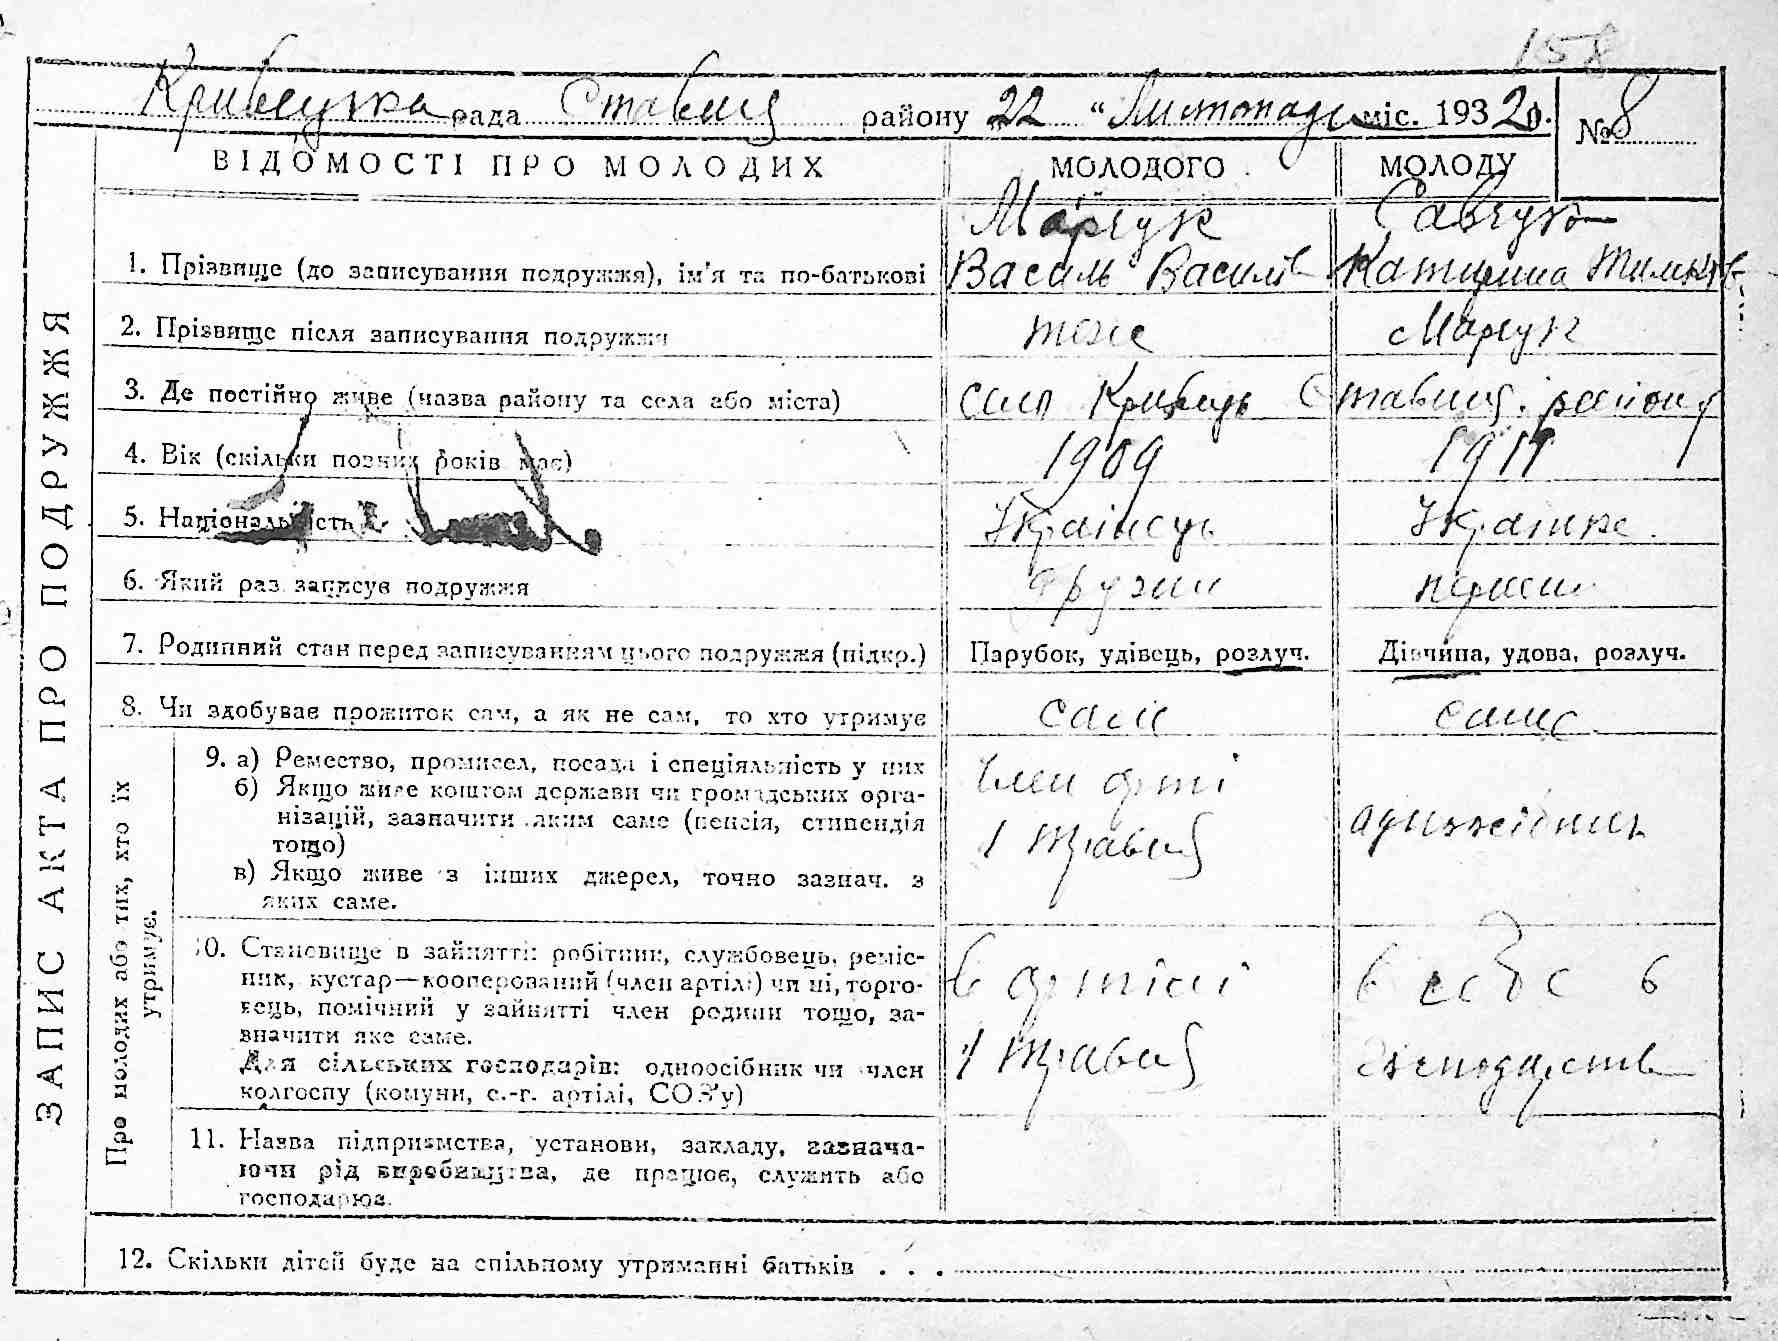 158
Кривецька рада Ставищ району 22 "Листопада міс. 1932 р. № 8
ВІДОМОСТІ ПРО МОЛОДИХ МОЛОДОГО МОЛОДУ
Марчук Савчук
1. Прізвище (до записування подружжя), ім'я та по-батькові Василь Василів Катирина
2. Прізвище після записування подружжя теж Марчук
3. Де постійно живе (назва району та села або міста) село Кривець Ставищ. району
4. Вік (скільки повних років має) 1909 1911
5. Національність Українець Українка
6. Який раз записує подружжя другий перший
7. Родинний стан перед записуванням цього подружжя (підкр.) Парубок, удівець, розлуч. Дівчина, удова, розлуч.
8. Чи здобуває прожиток сам, а як не сам, то хто утримує сам сама
9. а) Ремество, промисел, посада і спеціяльність у них
б) Якщо живе коштом держави чи громадських орга-
нізацій, зазначити яким саме (пенсія, стипендія
тощо)
в) Якщо живе з інших джерел, точно зазнач. з
яких саме.
член арті
1 Травня
10. Становище в зайнятті: робітник, службовець, реміс-
ник, кустар—кооперований (член артілі) чи ні, торго-
вець, помічний у зайнятті член родини тощо, за-
значити яке саме.
Для сільських господарів: одноосібник чи член
колгоспу (комуни, с.-г. артілі, СОЗ'у)
в артілі
1 Травня
в себе в
господарстві
11. Назва підприємства, установи, закладу, зазнача-
ючи рід виробництва, де працює, служить або
господарює.
12. Скільки дітей буде на спільному утриманні батьків . . .
ЗАПИС АКТА ПРО ПОДРУЖЖЯ
Про молодих або тих, хто їх
утримує.